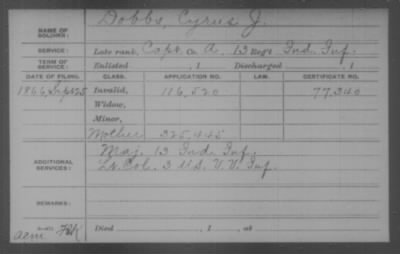 NAME OF SOLDIER: Dobbs, Cyrus J.
SERVICE: Late rank, Capt. Co. A, 13 Reg't Ind. Inf.
TERM OF SERVICE: Enlisted , 1 Discharged , 1
DATE OF FILING. CLASS. APPLICATION NO. LAW. CERTIFICATE NO.
1866 Sept 25 Invalid, 116,520 77,340
Widow,
Minor,
Mother 325,445
ADDITIONAL SERVICES: Maj. 13 Ind. Inf.
Lt. Col. 3 U.S. V.V. Inf.
REMARKS:
Died , 1 , at